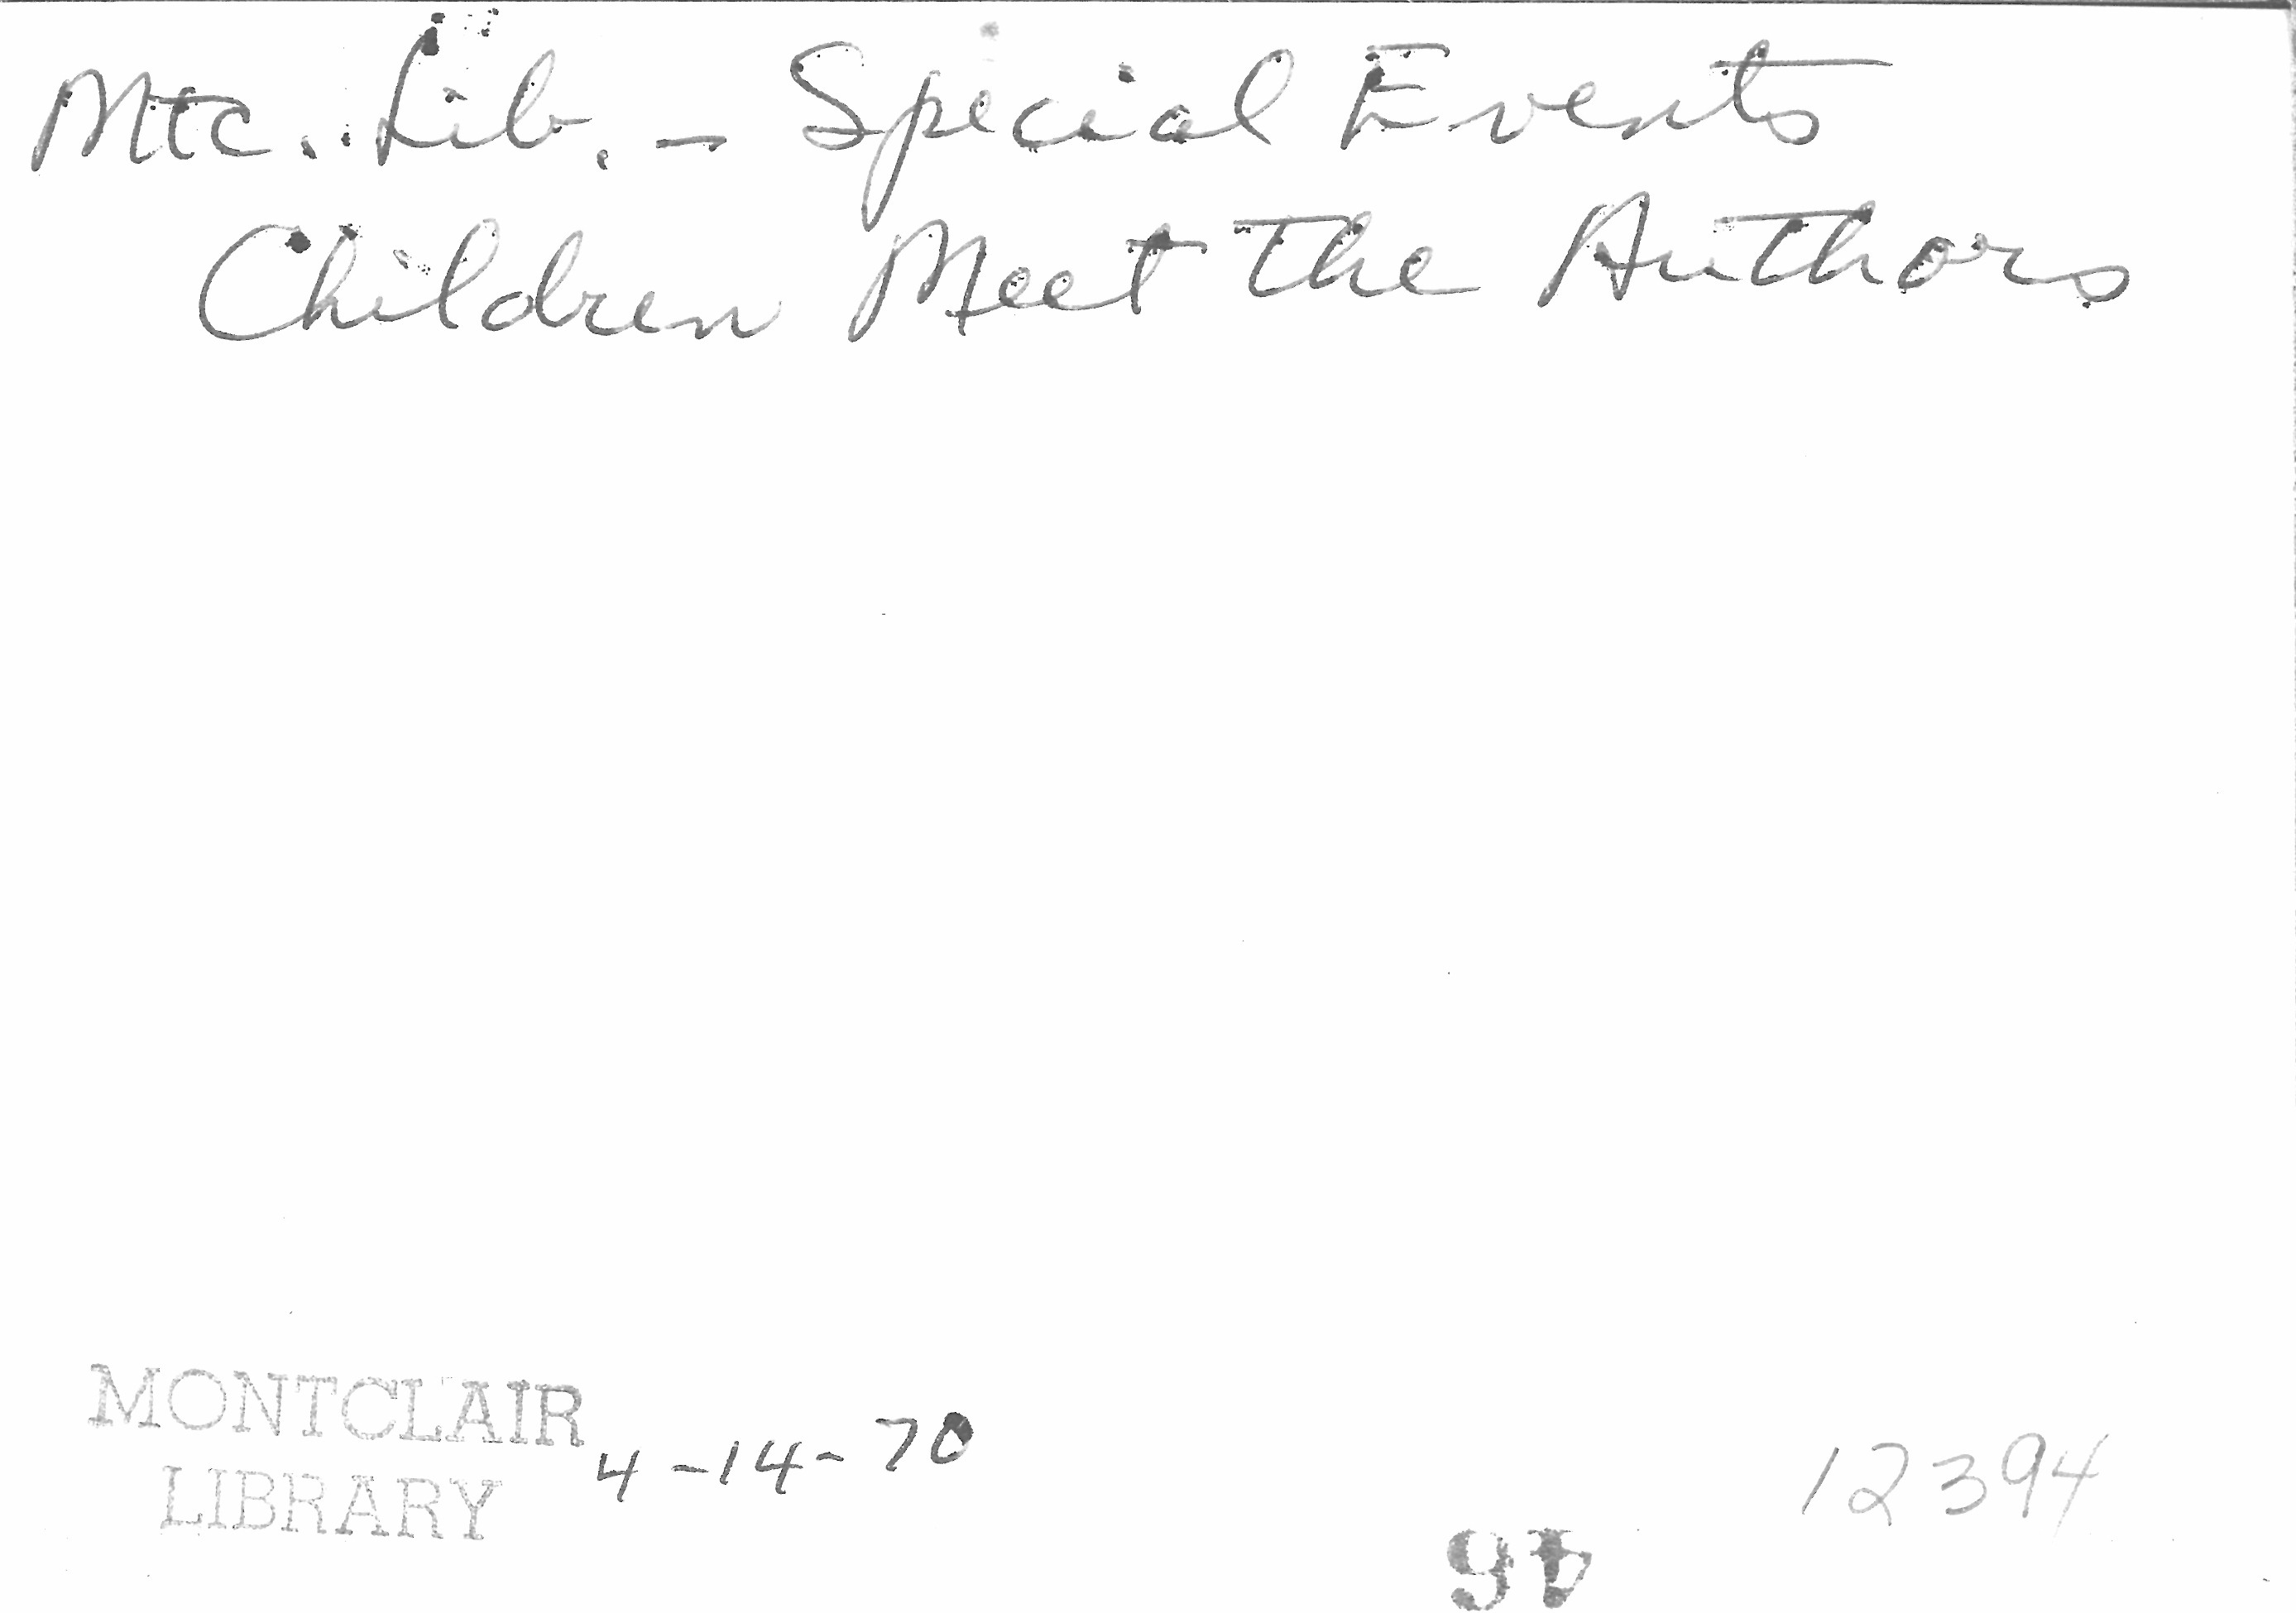 Mtc. Lib. - Special Events
Children Meet the Authors
MONTCLAIR
LIBRARY
4-14-70
12394